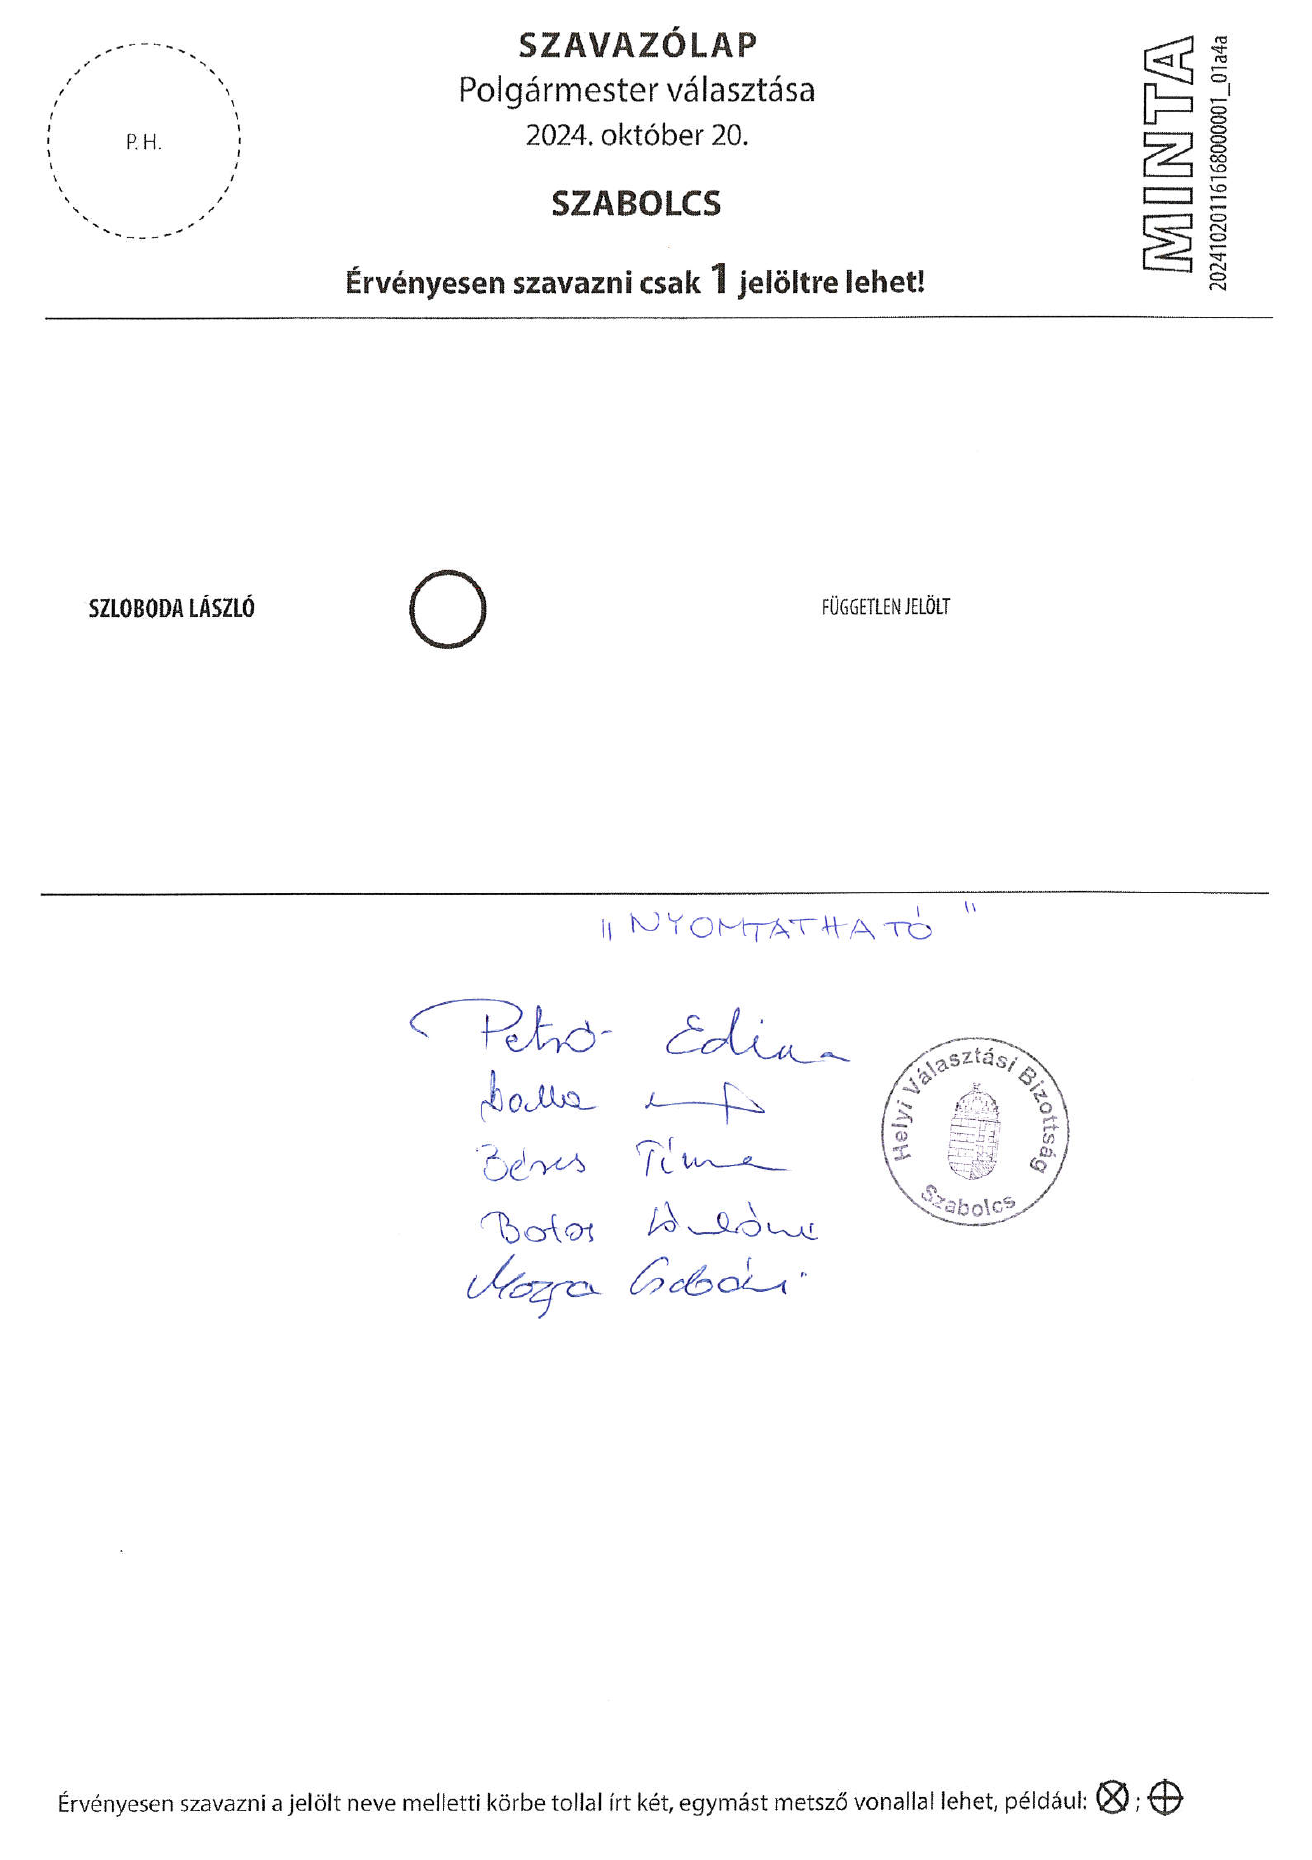 SZAVAZÓLAP
Polgármester választása
2024. október 20.
SZABOLCS
Érvényesen szavazni csak 1 jelöltre lehet!
P. H.
MINTA
2024102011616800001_01a4a
SZLOBODA LÁSZLÓ
FÜGGETLEN JELÖLT
"NYOMTATHATÓ"
Petró Edina
Balla
Béres Tímea
Botos
Mozga Csabáné
Helyi Választási Bizottság
Szabolcs
Érvényesen szavazni a jelölt neve melletti körbe tollal írt két, egymást metsző vonallal lehet, például: ;